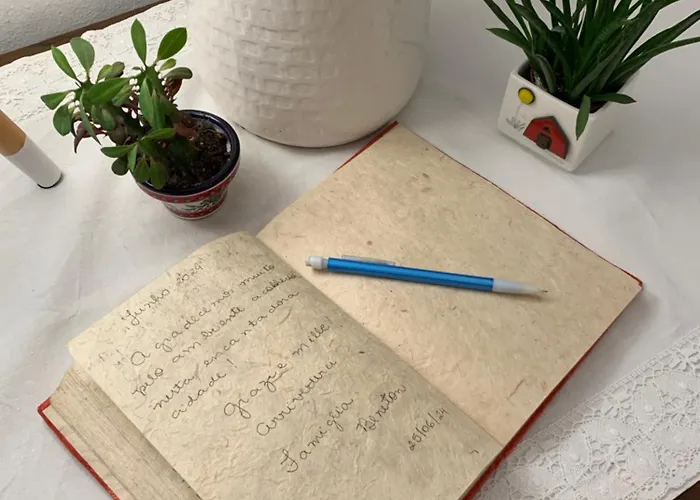 Junho 2024
Agradecemos muito
pelo ambiente acolhedor
nesta encantadora
cidade!
Grazie mille!
Arrivederci
Famiglia
Beneton
25/06/24